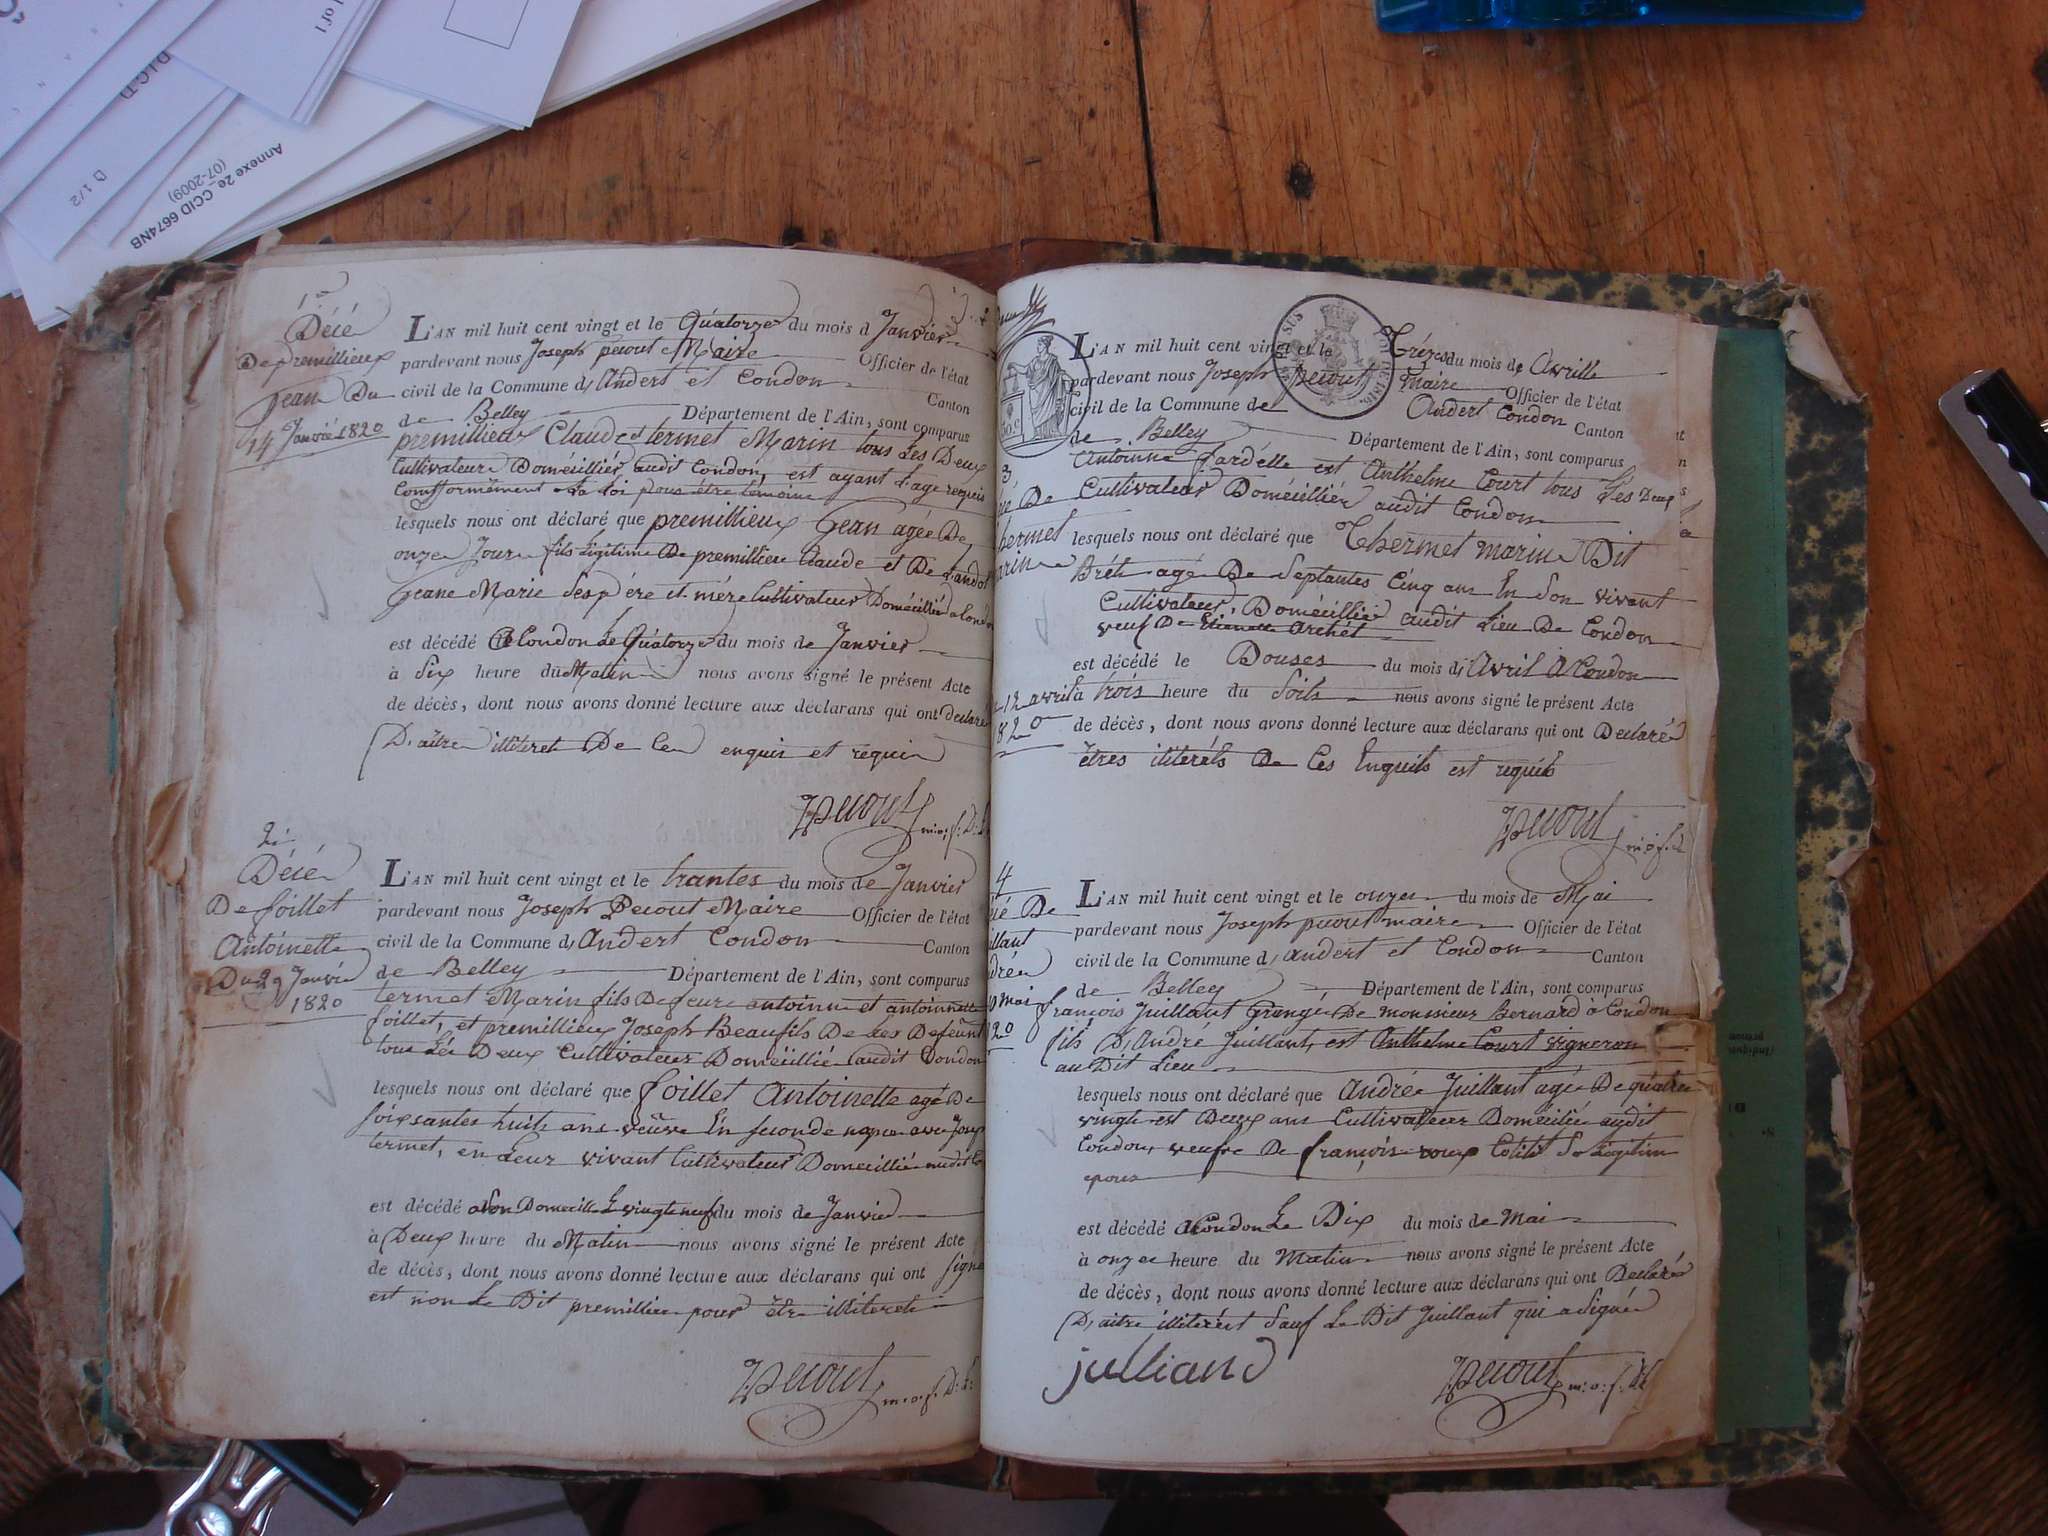 D.I.C.T)
1 of 1
D 1/2
Annexe 2e_CCID 6674NB
(07-2009)
1er
Décé
De premillieux
Jean Du
14 Janvié 1820
L'AN mil huit cent vingt et le Quatorze du mois d Janvier
pardevant nous Joseph pecout Maire Officier de l'état
civil de la Commune d, Andert et Condon Canton
de Belley Département de l'Ain, sont comparus
premillieux Claude et termet Marin tous Les Deux
Cultivateurs Doméeilliér audit Condon, est ayant l'age requis
Confformément a la loi pour être témoins
lesquels nous ont déclaré que premillieux Jean agée De
onze Jour fils Ligitime De premillieu Claude et De
Jeane Marie Ses père et mére Cultivateur Doméeillié a Condon
est décédé a Condon Le Quatorze du mois de Janvier
à Six heure du Matin nous avons signé le présent Acte
de décès, dont nous avons donné lecture aux déclarans qui ont declaré
D'aître illiteret De Ce enquis et requi
Pecout m: o: f: D: L:
2:
Décé
De foillet
Antoinette
Du 29 Janvié
1820
L'AN mil huit cent vingt et le trantes du mois de Janvier
pardevant nous Joseph Pecout Maire Officier de l'état
civil de la Commune d, Andert Condon Canton
de Belley Département de l'Ain, sont comparus
termet Marin fils De feux antoinne et antoinnette
foillet, et premillieux Joseph Beaufils De Les Defeunt
tous Lés Deux Cultivateur Doméillié audit Condon
lesquels nous ont déclaré que foillet Antoinette agé De
soixsantes huit ans veuve En seconde nopce avec Josep
termet, en Leur vivant Cultivateur Domeeillié audit Co
est décédé a Son Domecille Le vingt neuf du mois de Janvié
à Deux heure du Matin nous avons signé le présent Acte
de décès, dont nous avons donné lecture aux déclarans qui ont signé
est non Le Dit premillieu pour être illiteret
Pecout m: o: f: D: L:
L'AN mil huit cent vingt et le Trézes du mois de Avrille
pardevant nous Joseph Pecout Maire Officier de l'état
civil de la Commune de Andert Condon Canton
de Belley Département de l'Ain, sont comparus
Antoinne fardelle est Anthelme Court tous Les Deux
Cultivateur Doméeilliér audit Condon
3
De
hermet
arin
12 avril
820
lesquels nous ont déclaré que Thermet marin Dit
agé De Septantes Cinq ans En Son vivant
Cultivateur, Doméeillié audit Lieu De Condon
veuf De Etiennette Archét
est décédé le Douses du mois d, Avril A Condon
à trois heure du Soits nous avons signé le présent Acte
de décès, dont nous avons donné lecture aux déclarans qui ont Declaré
êtres ilitéréts De Ces Enquits est requits
Pecout m: o: f: d
4
cé De
illant
dré
10 mai
20
L'AN mil huit cent vingt et le onzes du mois de Mai
pardevant nous Joseph pecout maire Officier de l'état
civil de la Commune d, andert et Condon Canton
de Belley Département de l'Ain, sont comparus
françois Juillant Grengé De monsieur Bernard à Condon
fils D, André Juillant, est Anthelme Court vigneron
au Dit Lieu
lesquels nous ont déclaré que André Juillant agé De quatre
vingt est Deux ans Cultivateur Doméeilié audit
Condon, veufve De françoise roux
epous
est décédé a Condon Le Dix du mois de Mai
à onze heure du Matin nous avons signé le présent Acte
de décès, dont nous avons donné lecture aux déclarans qui ont Declaré
D, aitre illiterést Sauf Le Dit Juillant qui a Signé
julliand
Pecout m: o: f: D L